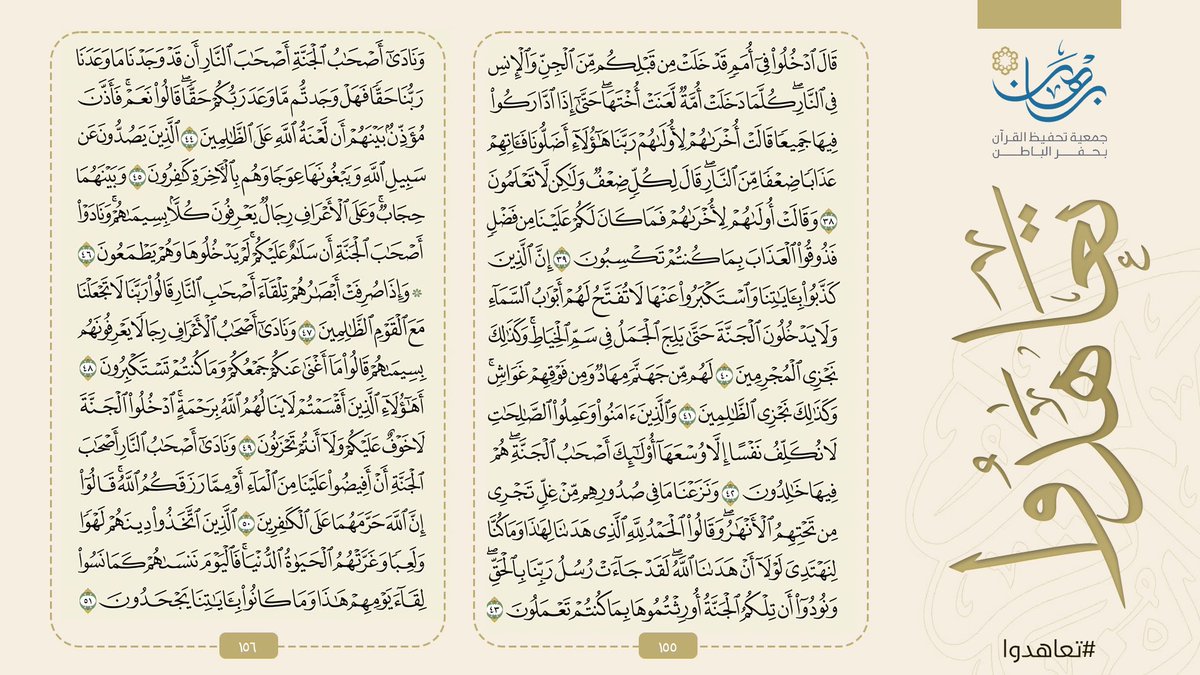 برهان
جمعية تحفيظ القرآن
بحفر الباطن
تعاهدوا
#تعاهدوا
قَالَ ٱدۡخُلُواْ فِيٓ أُمَمٖ قَدۡ خَلَتۡ مِن قَبۡلِكُم مِّنَ ٱلۡجِنِّ وَٱلۡإِنسِ
فِي ٱلنَّارِۖ كُلَّمَا دَخَلَتۡ أُمَّةٞ لَّعَنَتۡ أُخۡتَهَاۖ حَتَّىٰٓ إِذَا ٱدَّارَكُواْ
فِيهَا جَمِيعٗا قَالَتۡ أُخۡرَىٰهُمۡ لِأُولَىٰهُمۡ رَبَّنَا هَٰٓؤُلَآءِ أَضَلُّونَا فَـَٔاتِهِمۡ
عَذَابٗا ضِعۡفٗا مِّنَ ٱلنَّارِۖ قَالَ لِكُلّٖ ضِعۡفٞ وَلَٰكِن لَّا تَعۡلَمُونَ
٣٨ وَقَالَتۡ أُولَىٰهُمۡ لِأُخۡرَىٰهُمۡ فَمَا كَانَ لَكُمۡ عَلَيۡنَا مِن فَضۡلٖ
فَذُوقُواْ ٱلۡعَذَابَ بِمَا كُنتُمۡ تَكۡسِبُونَ ٣٩ إِنَّ ٱلَّذِينَ
كَذَّبُواْ بِـَٔايَٰتِنَا وَٱسۡتَكۡبَرُواْ عَنۡهَا لَا تُفَتَّحُ لَهُمۡ أَبۡوَٰبُ ٱلسَّمَآءِ
وَلَا يَدۡخُلُونَ ٱلۡجَنَّةَ حَتَّىٰ يَلِجَ ٱلۡجَمَلُ فِي سَمِّ ٱلۡخِيَاطِۚ وَكَذَٰلِكَ
نَجۡزِي ٱلۡمُجۡرِمِينَ ٤٠ لَهُم مِّن جَهَنَّمَ مِهَادٞ وَمِن فَوۡقِهِمۡ غَوَاشٖۚ
وَكَذَٰلِكَ نَجۡزِي ٱلظَّٰلِمِينَ ٤١ وَٱلَّذِينَ ءَامَنُواْ وَعَمِلُواْ ٱلصَّٰلِحَٰتِ
لَا نُكَلِّفُ نَفۡسًا إِلَّا وُسۡعَهَآ أُوْلَٰٓئِكَ أَصۡحَٰبُ ٱلۡجَنَّةِۖ هُمۡ
فِيهَا خَٰلِدُونَ ٤٢ وَنَزَعۡنَا مَا فِي صُدُورِهِم مِّنۡ غِلّٖ تَجۡرِي
مِن تَحۡتِهِمُ ٱلۡأَنۡهَٰرُۖ وَقَالُواْ ٱلۡحَمۡدُ لِلَّهِ ٱلَّذِي هَدَىٰنَا لِهَٰذَا وَمَا كُنَّا
لِنَهۡتَدِيَ لَوۡلَآ أَنۡ هَدَىٰنَا ٱللَّهُۖ لَقَدۡ جَآءَتۡ رُسُلُ رَبِّنَا بِٱلۡحَقِّۖ
وَنُودُوٓاْ أَن تِلۡكُمُ ٱلۡجَنَّةُ أُورِثۡتُمُوهَا بِمَا كُنتُمۡ تَعۡمَلُونَ ٤٣
١٥٥
وَنَادَىٰٓ أَصۡحَٰبُ ٱلۡجَنَّةِ أَصۡحَٰبَ ٱلنَّارِ أَن قَدۡ وَجَدۡنَا مَا وَعَدَنَا
رَبُّنَا حَقّٗا فَهَلۡ وَجَدتُّم مَّا وَعَدَ رَبُّكُمۡ حَقّٗاۖ قَالُواْ نَعَمۡۚ فَأَذَّنَ
مُؤَذِّنُۢ بَيۡنَهُمۡ أَن لَّعۡنَةُ ٱللَّهِ عَلَى ٱلظَّٰلِمِينَ ٤٤ ٱلَّذِينَ يَصُدُّونَ عَن
سَبِيلِ ٱللَّهِ وَيَبۡغُونَهَا عِوَجٗا وَهُم بِٱلۡأٓخِرَةِ كَٰفِرُونَ ٤٥ وَبَيۡنَهُمَا
حِجَابٞۚ وَعَلَى ٱلۡأَعۡرَافِ رِجَالٞ يَعۡرِفُونَ كُلَّۢا بِسِيمَىٰهُمۡۚ وَنَادَوۡاْ
أَصۡحَٰبَ ٱلۡجَنَّةِ أَن سَلَٰمٌ عَلَيۡكُمۡۚ لَمۡ يَدۡخُلُوهَا وَهُمۡ يَطۡمَعُونَ ٤٦
۞ وَإِذَا صُرِفَتۡ أَبۡصَٰرُهُمۡ تِلۡقَآءَ أَصۡحَٰبِ ٱلنَّارِ قَالُواْ رَبَّنَا لَا تَجۡعَلۡنَا
مَعَ ٱلۡقَوۡمِ ٱلظَّٰلِمِينَ ٤٧ وَنَادَىٰٓ أَصۡحَٰبُ ٱلۡأَعۡرَافِ رِجَالٗا يَعۡرِفُونَهُم
بِسِيمَىٰهُمۡ قَالُواْ مَآ أَغۡنَىٰ عَنكُمۡ جَمۡعُكُمۡ وَمَا كُنتُمۡ تَسۡتَكۡبِرُونَ ٤٨
أَهَٰٓؤُلَآءِ ٱلَّذِينَ أَقۡسَمۡتُمۡ لَا يَنَالُهُمُ ٱللَّهُ بِرَحۡمَةٍۚ ٱدۡخُلُواْ ٱلۡجَنَّةَ
لَا خَوۡفٌ عَلَيۡكُمۡ وَلَآ أَنتُمۡ تَحۡزَنُونَ ٤٩ وَنَادَىٰٓ أَصۡحَٰبُ ٱلنَّارِ أَصۡحَٰبَ
ٱلۡجَنَّةِ أَنۡ أَفِيضُواْ عَلَيۡنَا مِنَ ٱلۡمَآءِ أَوۡ مِمَّا رَزَقَكُمُ ٱللَّهُۚ قَالُوٓاْ
إِنَّ ٱللَّهَ حَرَّمَهُمَا عَلَى ٱلۡكَٰفِرِينَ ٥٠ ٱلَّذِينَ ٱتَّخَذُواْ دِينَهُمۡ لَهۡوٗا
وَلَعِبٗا وَغَرَّتۡهُمُ ٱلۡحَيَوٰةُ ٱلدُّنۡيَاۚ فَٱلۡيَوۡمَ نَنسَىٰهُمۡ كَمَا نَسُواْ
لِقَآءَ يَوۡمِهِمۡ هَٰذَا وَمَا كَانُواْ بِـَٔايَٰتِنَا يَجۡحَدُونَ ٥١
١٥٦